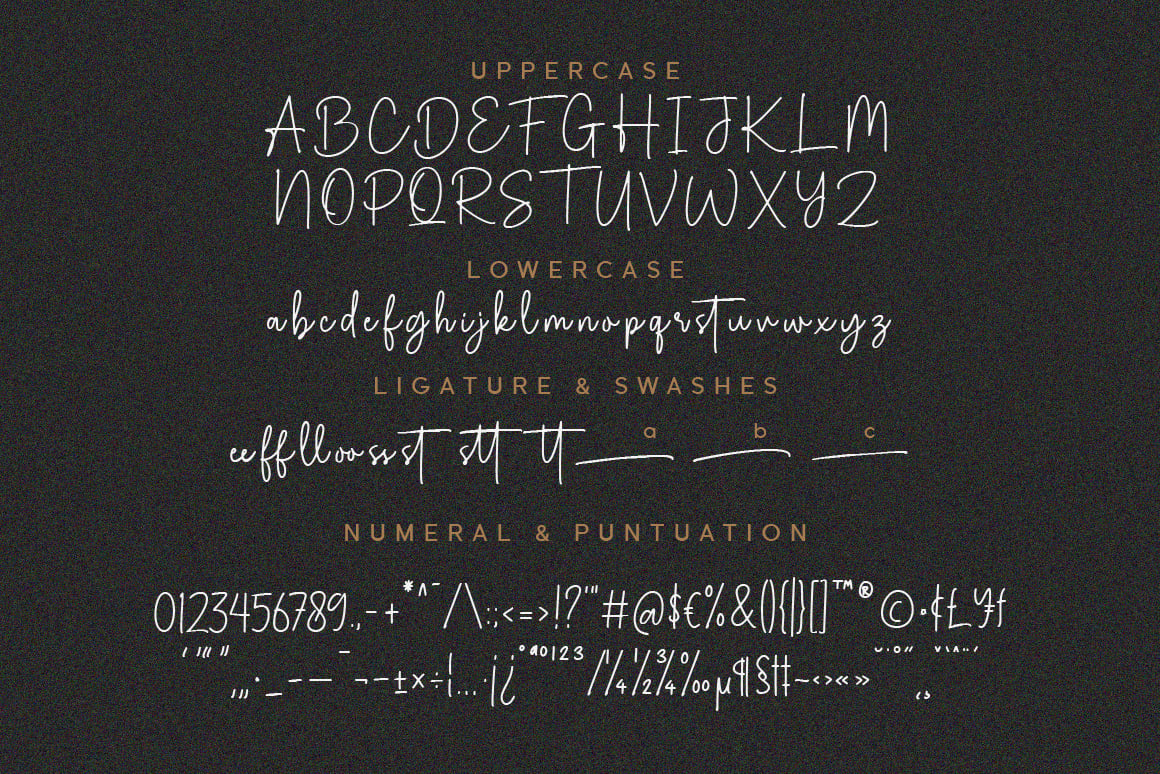 UPPERCASE
ABCDEFGHIJKLM
NOPQRSTUVWXYZ
LOWERCASE
abcdefghijklmnopqrstuvwxyz
LIGATURE & SWASHES
eefflloossst stt tt a b c
NUMERAL & PUNTUATION
0123456789.,-+*^¯/\:;<=>!?'"#@$€%&(){|}[]™®©·¢£¥ƒ
‚„·_–—¬-±×÷¦…·¡¿°ªº123⁄¼½¾‰µ¶§†‡~‹›«»